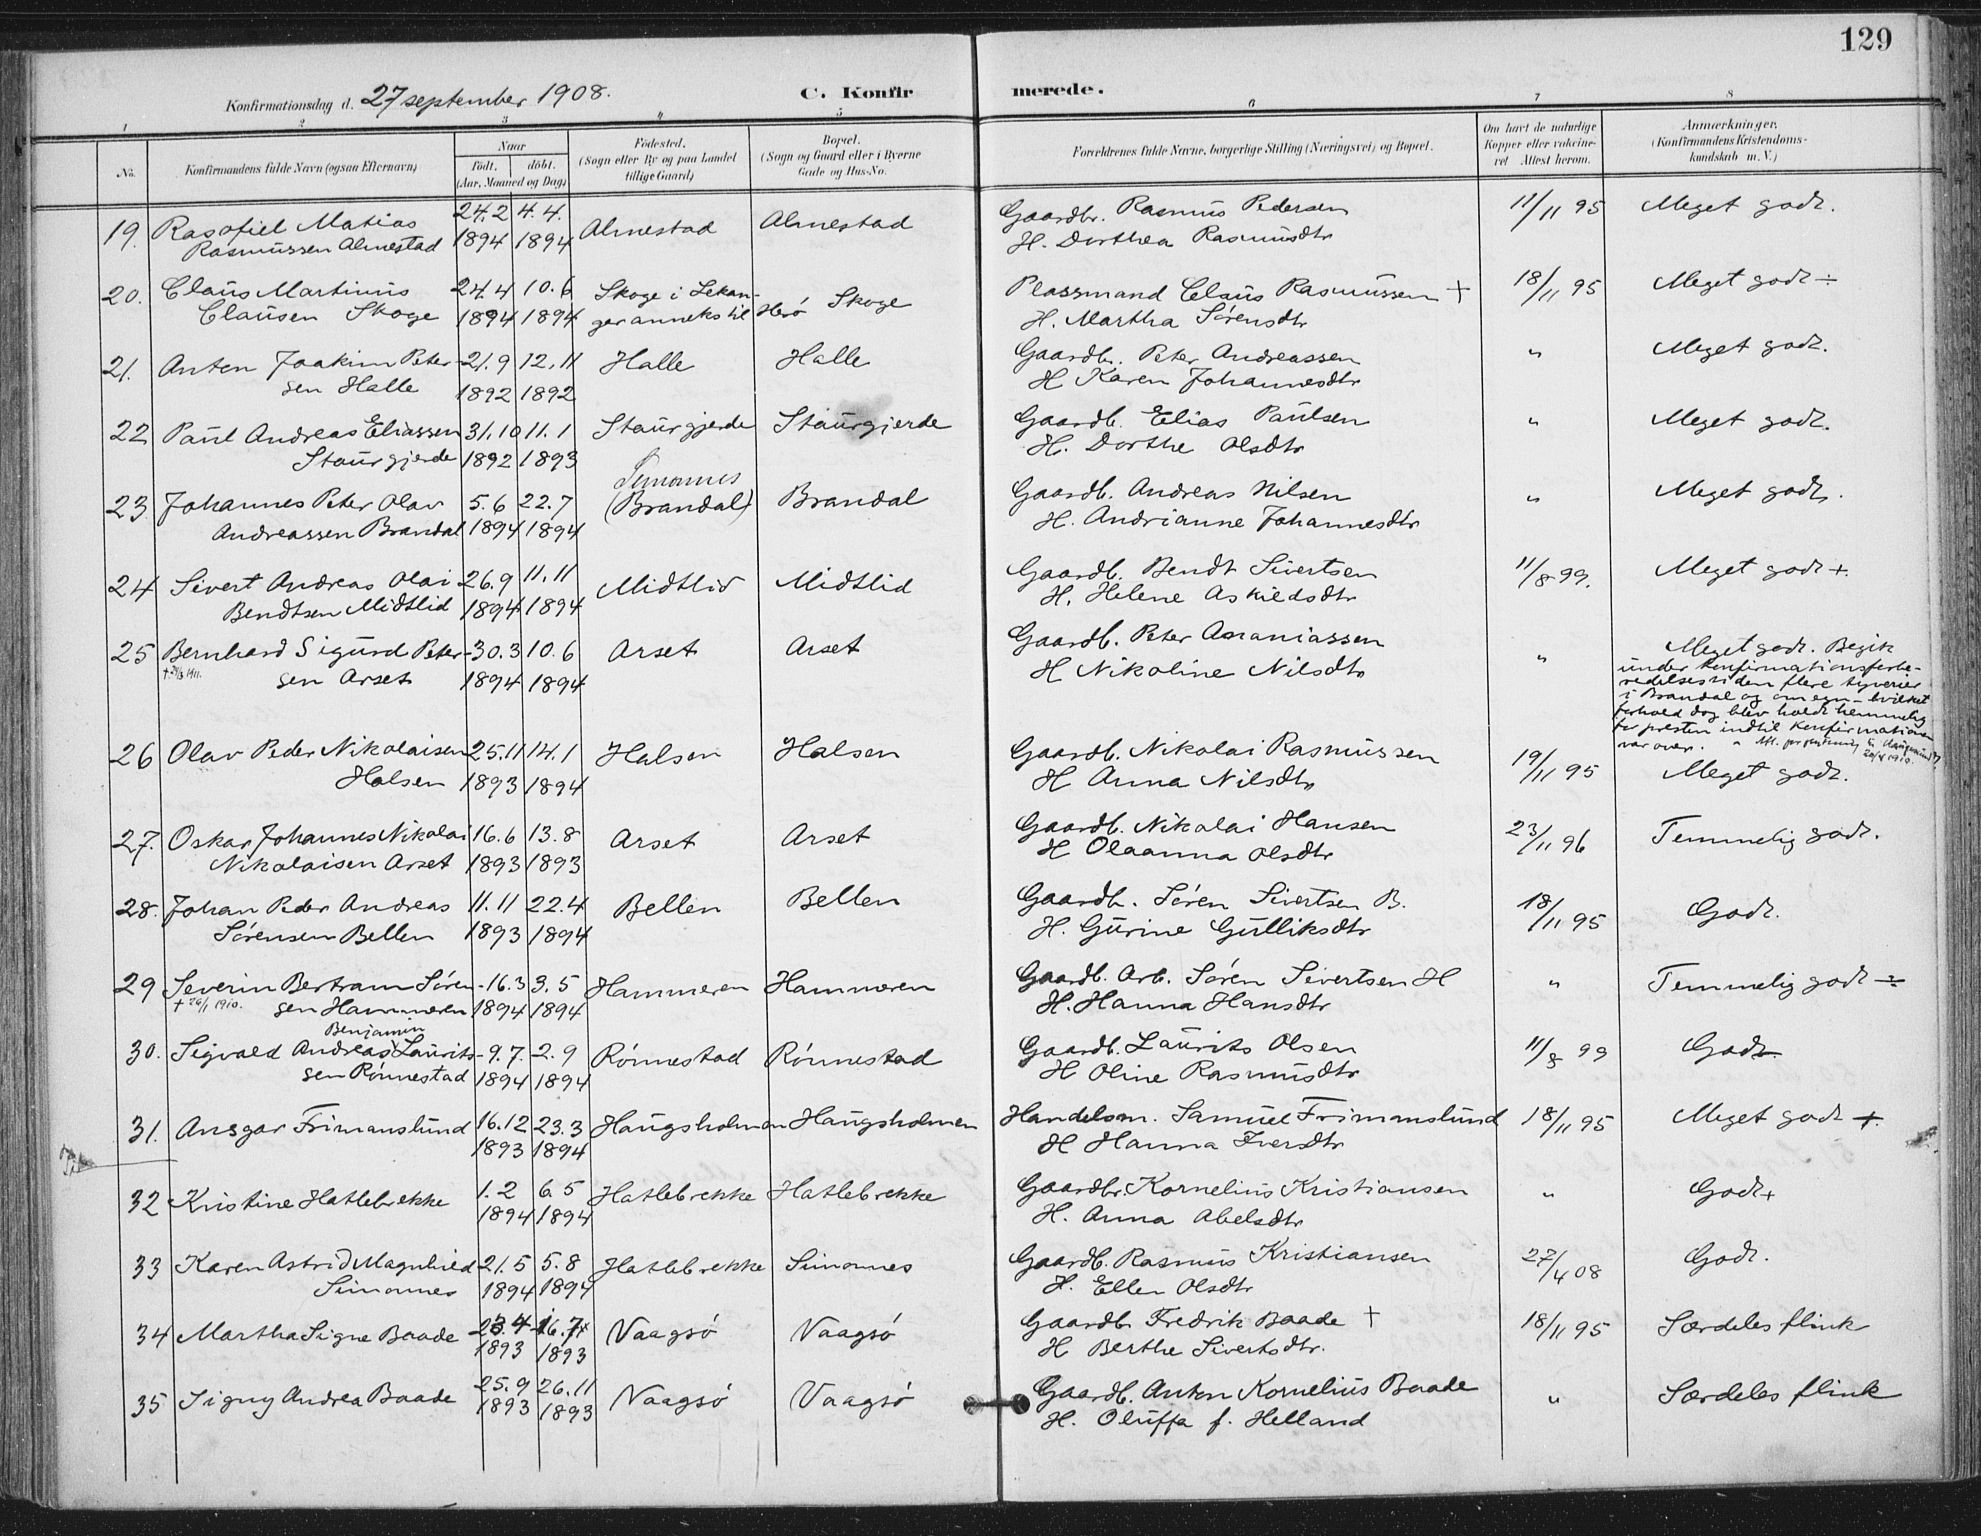 129
Konfirmationsdag d. 27 september 1908. C. Konfirmerede.
1 2 3 4 5 6 7 8
No. Konfirmandens fulde Navn (ogsaa Efternavn) Naar Født. døbt. (Aar, Maaned og Dag) Fødested. (Sogn eller By og paa Landet tillige Gaard) Bopæl. (Sogn og Gaard eller i Byerne Gade og Hus-No. Forældrenes fulde Navne, borgerlige Stilling (Næringsvei) og Bopæl. Om havt de naturlige Kopper eller vakcineret Attest herom. Anmærkninger. (Konfirmandens Kristendomskundskab m. V.)
19. Rasofiel Matias 24.2 4.4. Almestad Almestad Gaardbr. Rasmus Pedersen 11/11 95 Meget godt.
Rasmussen Almestad 1894 1894 H. Dorthea Rasmusdtr
20. Claus Martinus 24.4 10.6 Skoge i Lekan- Herø Skoge Plassmand Claus Rasmussen + 18/11 95 Meget godt ÷
Clausen Skoge 1894 1894 ger anneks til H. Martha Sørensdtr
21. Anton Joakim Peter- 21.9 12.11 Halle Halle Gaardb. Peter Andreassen " Meget godt.
sen Halle 1892 1892 H Karen Johannesdtr
22 Paul Andreas Eliassen 31.10 11.1 Staurgjerde Staurgjerde Gaardb. Elias Paulsen " Meget godt.
Staurgjerde 1892 1893 H. Dorthe Olsdtr
Simonnes
23 Johannes Peter Olav 5.6 22.7 (Brandal) Brandal Gaardb. Andreas Nilsen " Meget godt.
Andreassen Brandal 1894 1894 H. Andrianne Johannesdtr
24 Sivert Andreas Olai 26.9 11.11 Midtlid Midtlid Gaardb. Bendt Sivertsen 11/8 99. Meget godt +.
Bendtsen Midtlid 1894 1894 H. Helene Askiedsdtr
25 Bernhard Sigurd Peter- 30.3 10.6 Arset Arset Gaardb. Peter Ananiassen " Meget godt. Begik
1911. sen Arset 1894 1894 H Nikoline Nilsdtr under konfirmationsforbe-
redelsestiden flere tyverier
i Brandal og omegn – hvilket
forhold dog blev holdt hemmelig
for presten indtil konfirmationen
var over.
1910.
26 Olav Peder Nikolaisen 25.11 14.1 Halsen Halsen Gaardb. Nikolai Rasmussen 19/11 95 Meget godt.
Halsen 1893 1894 H Anna Nilsdtr
27. Oskar Johannes Nikolai 16.6 13.8 Arset Arset Gaardb. Nikolai Hansen 23/11 96 Temmelig godt.
Nikolaisen Arset 1893 1893 H Olaanna Olsdtr
28. Johan Peder Andreas 11.11 22.4 Bellen Bellen Gaardb. Søren Sivertsen B. 18/11 95 Godt.
Sørensen Bellen 1893 1894 H. Gurine Gulliksdtr
29 Severin Bertram Søren- 16.3 3.5 Hammeren Hammeren Gaardb. Arb. Søren Sivertsen H " Temmelig godt ÷
+ 26/1 1910. sen Hammeren 1894 1894 H. Hanna Hansdtr
Benjamin
30. Sigvald Andreas Laurits- 9.7. 2.9 Rønnestad Rønnestad Gaardb. Laurits Olsen 11/8 99 Godt
sen Rønnestad 1894 1894 H Oline Rasmusdtr
31. Ansgar Frimanslund 16.12 23.3 Haugsholmen Haugsholmen Handelsm. Samuel Frimanslund 18/11 95 Meget godt +.
1893 1894 H Hanna Iversdtr
32 Kristine Hatlebrekke 1.2 6.5 Hatlebrekke Hatlebrekke Gaardbr. Kornelius Kristiansen " Godt+
1894 1894 H. Anna Abelsdtr
33 Karen Astrid Magnhild 21.5 5.8 Hatlebrekke Simonnes Gaardb. Rasmus Kristiansen 27/4 08 Godt.
Simonnes 1894 1894 H. Ellen Olsdtr
34 Martha Signe Baade 23.4 16.7 Vaagsø Vaagsø Gaardb. Fredrik Baade + 18/11 95 Særdeles flink
1893 1893 H Berthe Sivertsdtr.
35 Signy Andrea Baade 25.9 26.11 Vaagsø Vaagsø Gaardb. Anton Kornelius Baade " Særdeles flink
1893 1893 H. Oluffa f. Helland